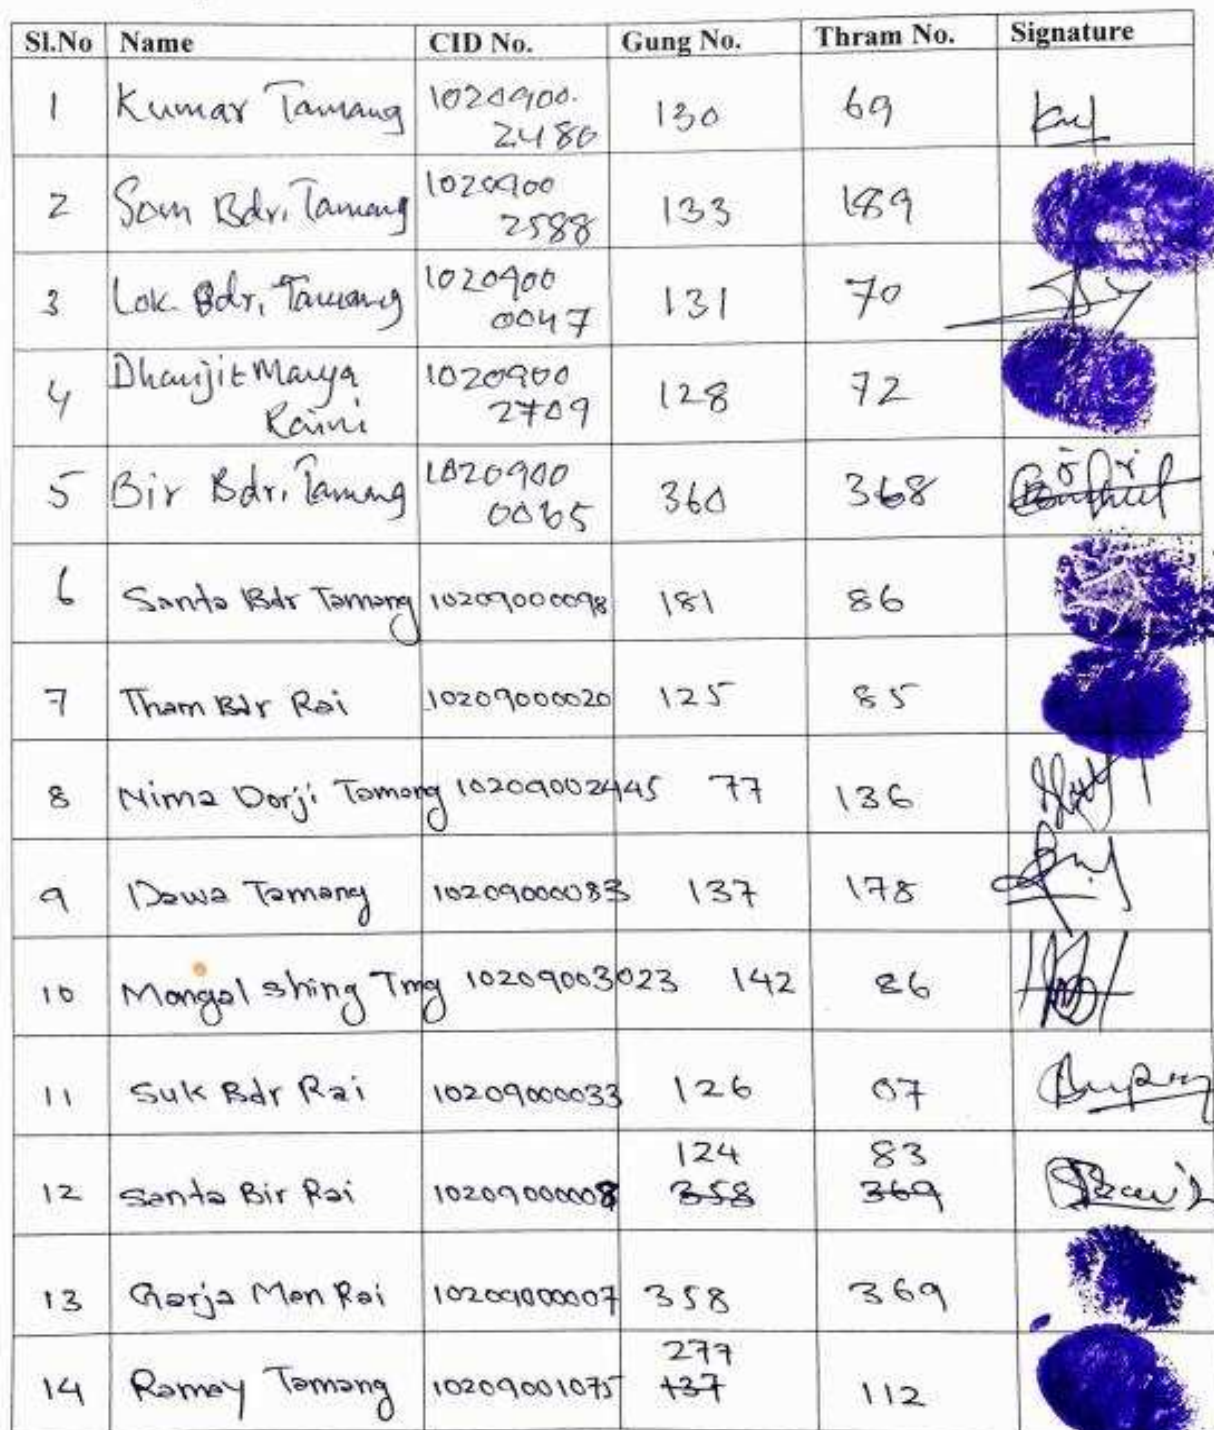 Sl.No Name CID No. Gung No. Thram No. Signature
1 Kumar Tamang 1020900. 130 69
2480
2 Som Bdr. Tamang 1020900 133 189
2588
3 Lok. Bdr. Tamang 1020900 131 70
0047
4 Dhanjit Maya 1020900 128 72
Raini 2709
5 Bir Bdr. Tamang 1020900 360 368
0065
6 Santa Bdr Tamang 10209000098 181 86
7 Tham Bdr Rai 10209000020 125 85
8 Nima Dorji Tamang 10209002445 77 136
9 Dawa Tamang 10209000083 137 178
10 Mongal Shing Tmg 10209003023 142 86
11 Suk Bdr Rai 10209000033 126 07
124 83
12 Santa Bir Rai 10209000008 358 369
13 Garja Man Rai 10209000007 358 369
277
14 Tamang 10209001075 137 112